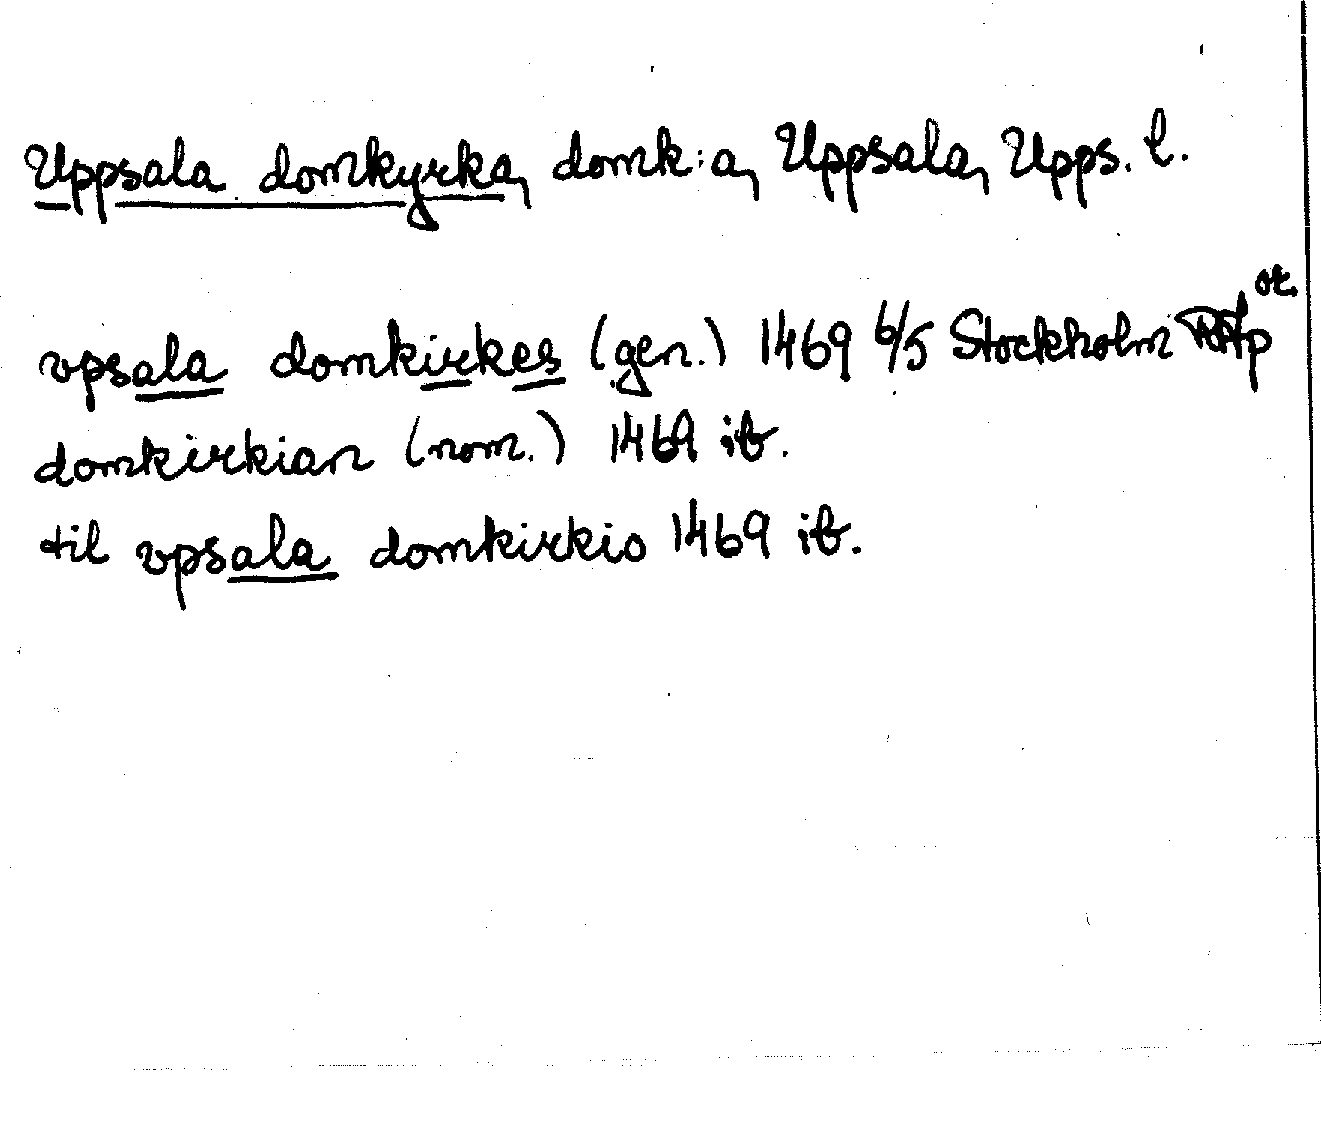 Uppsala domkyrka, domk:a, Uppsala, Upps. l.
vpsala domkirkes (gen.) 1469 6/5 Stockholm or.
domkirkian (nom.) 1469 ib.
til vpsala domkirkio 1469 ib.